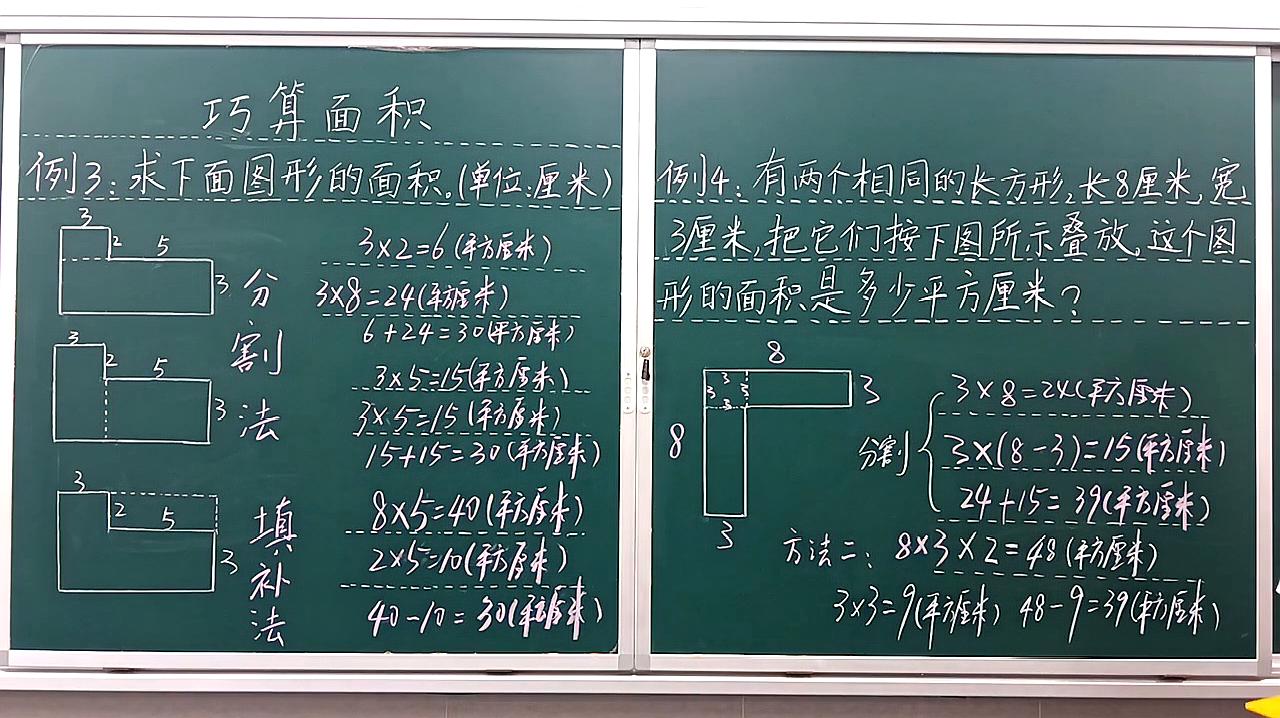 巧算面积
例3:求下面图形的面积。(单位:厘米)
3
2 5
3
分割法
3×2=6(平方厘米)
3×8=24(平方厘米)
6+24=30(平方厘米)
3
2 5
3
3×5=15(平方厘米)
3×5=15(平方厘米)
15+15=30(平方厘米)
3
2 5
3
填补法
8×5=40(平方厘米)
2×5=10(平方厘米)
40-10=30(平方厘米)
例4:有两个相同的长方形,长8厘米,宽
3厘米,把它们按下图所示叠放。这个图
形的面积是多少平方厘米?
8
3
3 3
3
3
8
3
分割
3×8=24(平方厘米)
3×(8-3)=15(平方厘米)
24+15=39(平方厘米)
方法二:8×3×2=48(平方厘米)
3×3=9(平方厘米) 48-9=39(平方厘米)